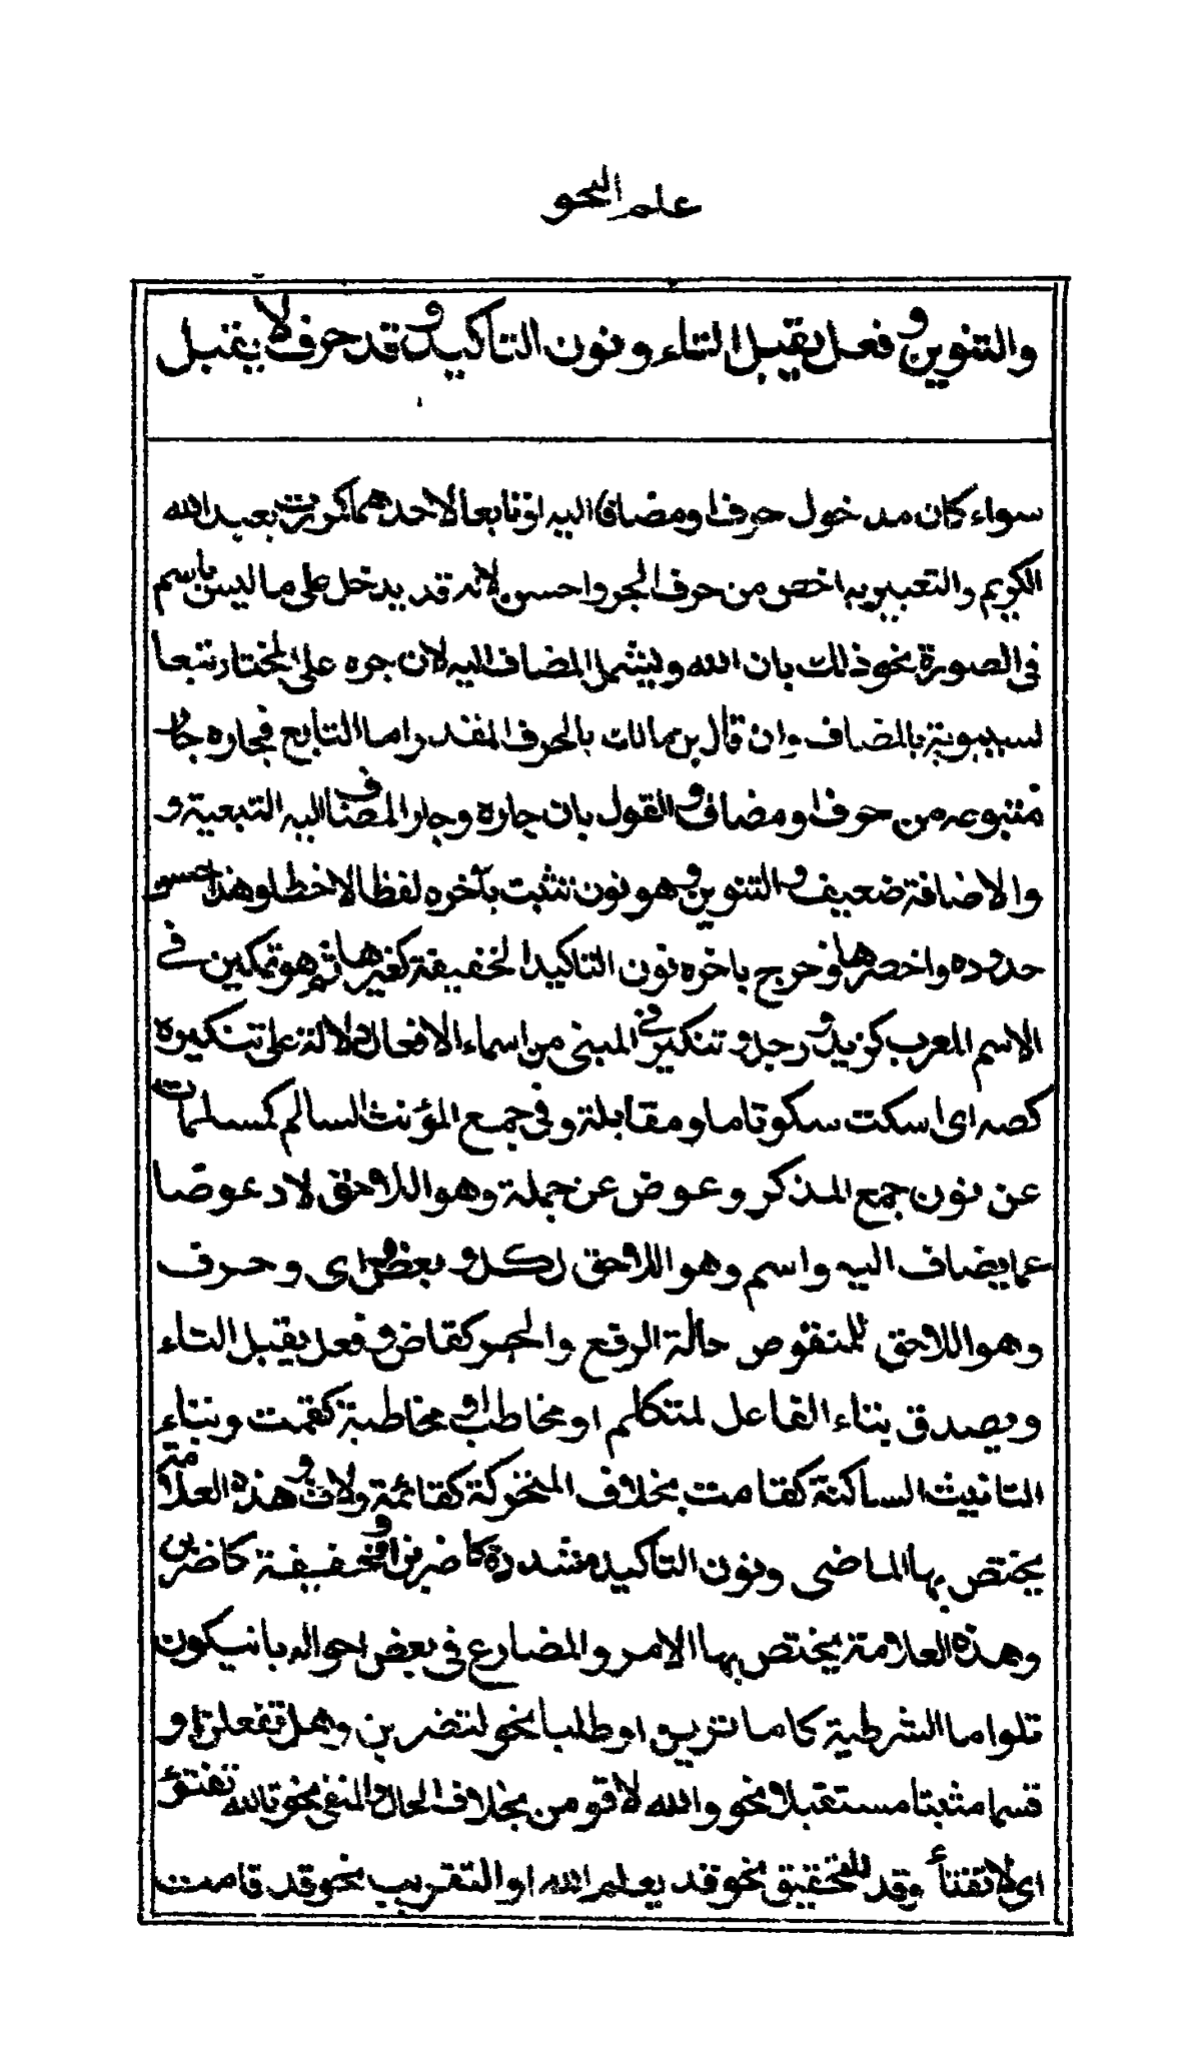 علم النحو
والتنوين وفعل يقبل التاء ونون التأكيد وقد وحرف لا يقبل
سواء كان مدخول حرف او مضاف اليه او تابعا لاحدهما كمررت بعبد الله
الكريم والتعبير به اخص من حرف الجر واحسن لانه قد يدخل على ما ليس باسم
في الصورة نحو ذلك بان الله ويشمل المضاف اليه لان جره على المختار تبعا
لسيبويه بالمضاف وان قال بن مالك بالحرف المقدر اما التابع فجاره جار
متبوعه من حرف او مضاف والقول بان جاره وجار المضاف اليه التبعية و
والاضافة ضعيف والتنوين وهو نون تثبت بآخره لفظا لا خطا وهذا احسن
حدوده واخصرها وخرج باخره نون التاكيد الخفيفة كغيرها ثم هو تمكين في
الاسم المعرب كزيد ورجل وتنكير في المبنى من اسماء الافعال دلالة على تنكيره
كصه اى اسكت سكوتا ما ومقابلة وفي جمع المؤنث السالم كمسلمات
عن نون جمع المذكر وعوض عن جملة وهو اللاحق لاذ عوضا
عما يضاف اليه واسم وهو اللاحق لكل وبعض واى وحرف
وهو اللاحق للمنقوص حالة الرفع والجر كقاض وفعل يقبل التاء
ويصدق بتاء الفاعل لمتكلم او مخاطب او مخاطبة كقمت وبتاء
التانيث الساكنة كقامت بخلاف المتحركة كقائمة ولات وهذه العلامة
يختص بها الماضى ونون التاكيد مشددة كاضربن او مخففة كاضربن
وهذه العلامة يختص بها الامر والمضارع في بعض احواله بان يكون
تلو اما الشرطية كاما ترين او طلبا نحو لتضربن وهل تفعلن او
قسما مثبتا مستقبلا نحو والله لاقومن بخلاف الحال والمنفى نحو تالله تفتؤ
اى لا تفتأ وقد للتحقيق نحو قد يعلم الله او التقريب نحو قد قامت